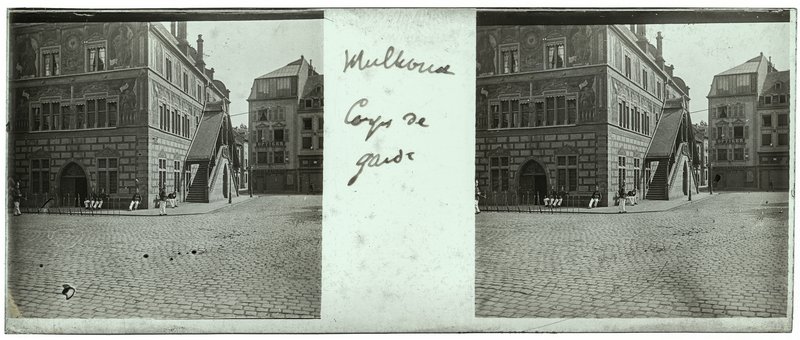 Mulhouse
Corps de
garde